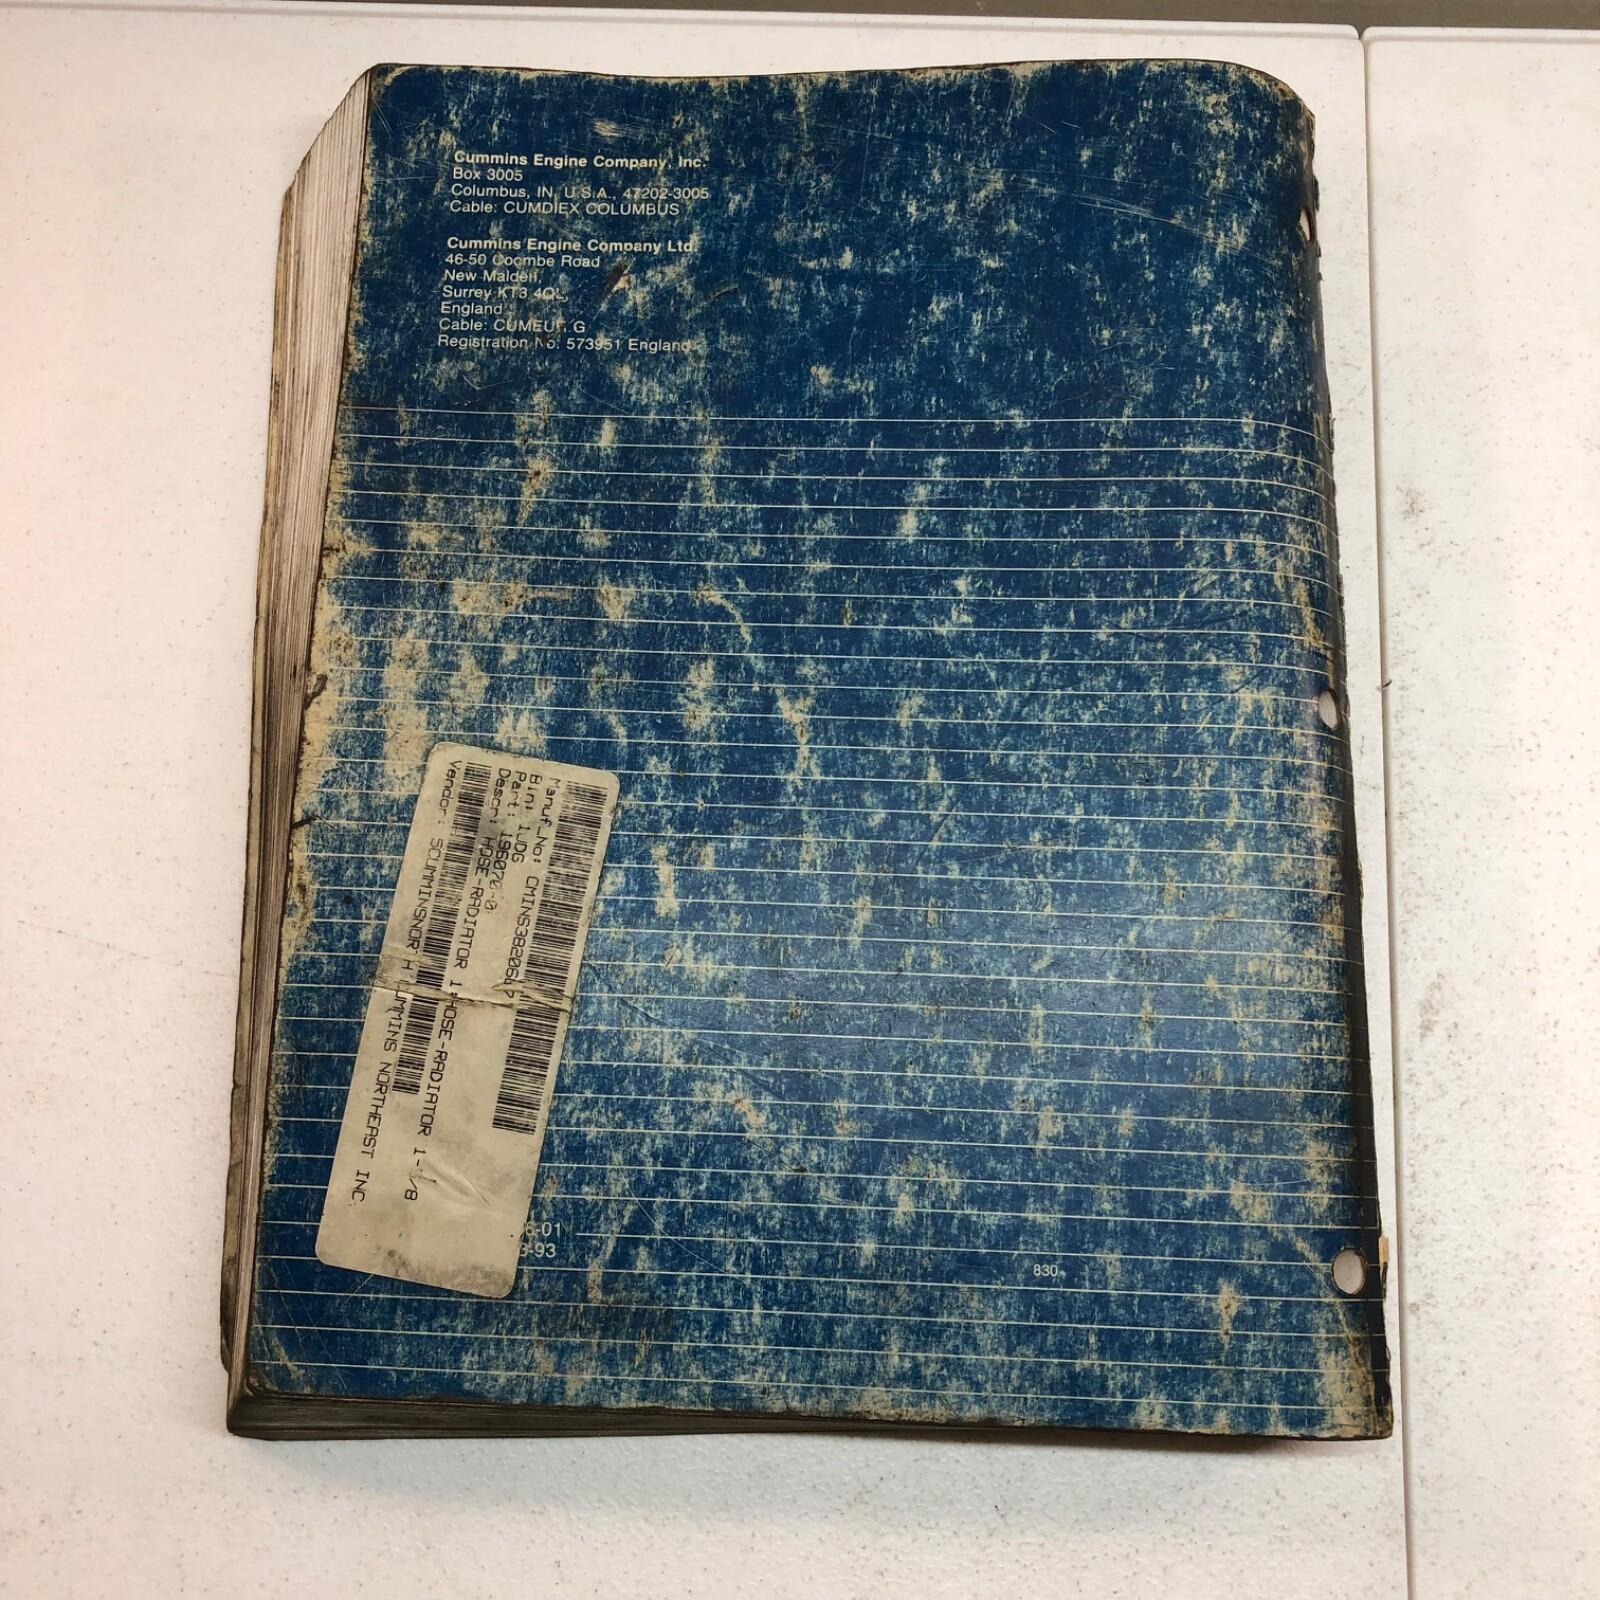 Cummins Engine Company, Inc.
Box 3005
Columbus, IN, U.S.A., 47202-3005
Cable: CUMDIEX COLUMBUS
Cummins Engine Company Ltd.
46-50 Coombe Road
New Malden,
Surrey KT3
England
Cable:
Registration No. 573951 England
Manuf_No:
Bin: 1JDG
Part: 196070-0
Descr: HOSE-RADIATOR 1*HOSE-RADIATOR
Vendor: SCUMMINSNOR NORTHEAST INC
6-01
3-93
830